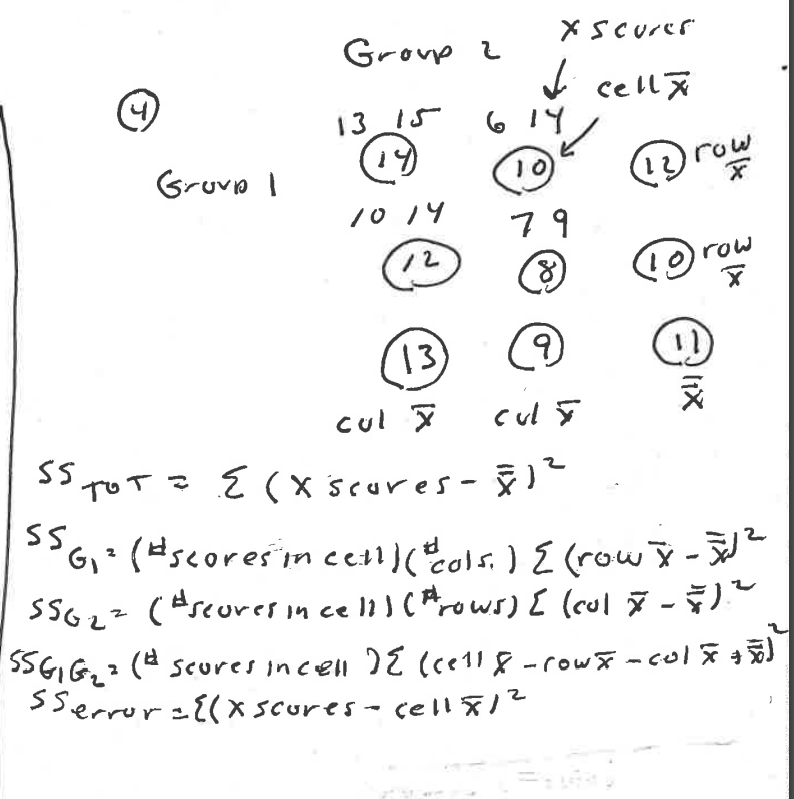 Group 2 X scores
cell x̄
④
13 15 6 14
14 10 12 row x̄
Group 1
10 14 7 9
12 8 10 row x̄
13 9 11
col x̄ col x̄ x̿
SS TOT = Σ (X scores - x̿)²
SS G₁ = (# scores in cell)(# cols.) Σ (row x̄ - x̿)²
SS G₂ = (# scores in cell)(# rows) Σ (col x̄ - x̿)²
SS G₁G₂ = (# scores in cell) Σ (cell x̄ - row x̄ - col x̄ + x̿)²
SS error = Σ(X scores - cell x̄)²